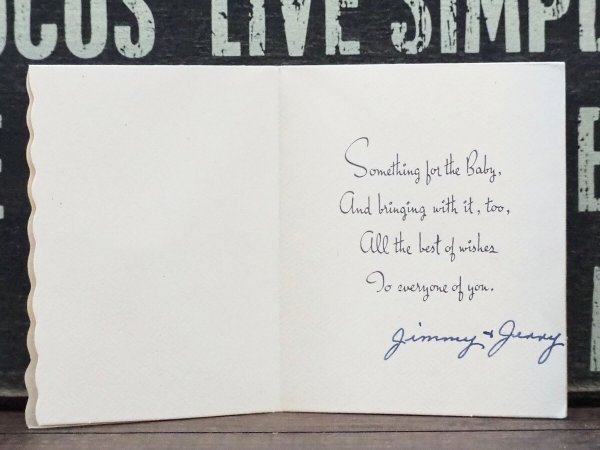 OCUS LIVE SIMPL
Something for the Baby,
And bringing with it, too,
All the best of wishes
To everyone of you.
Jimmy + Jerry